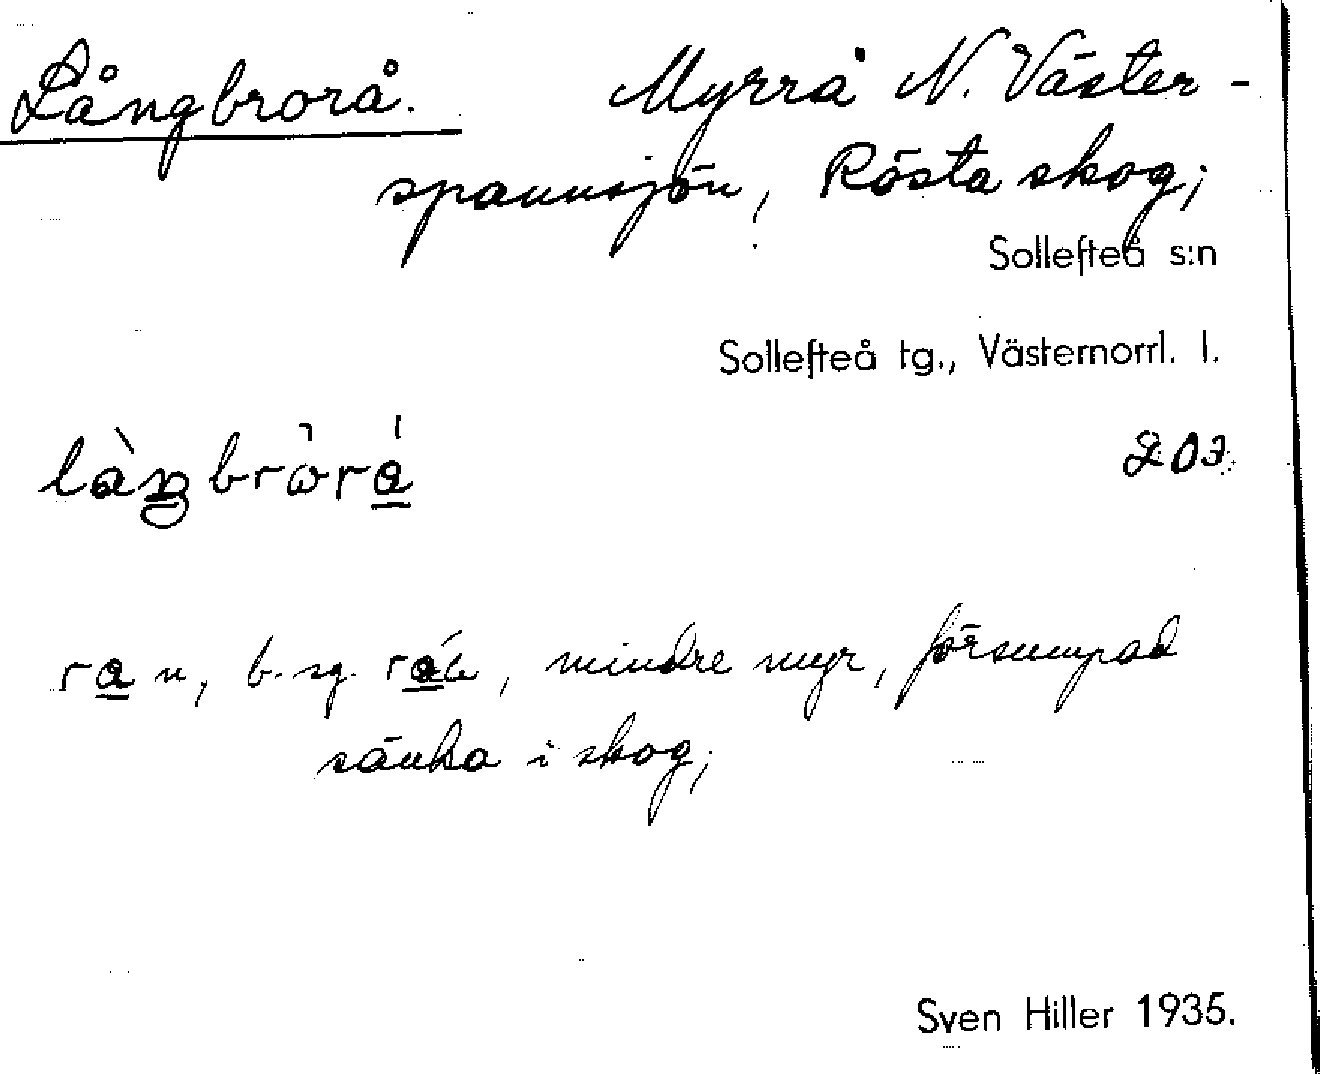 Långbrorå. Myrrå N. Väster-
spannsjön, Rösta skog;
Sollefteå s:n
Sollefteå tg., Västernorrl. l.
203
ra n, b. sg. , mindre myr, försumpad
sänka i skog;
Sven Hiller 1935.